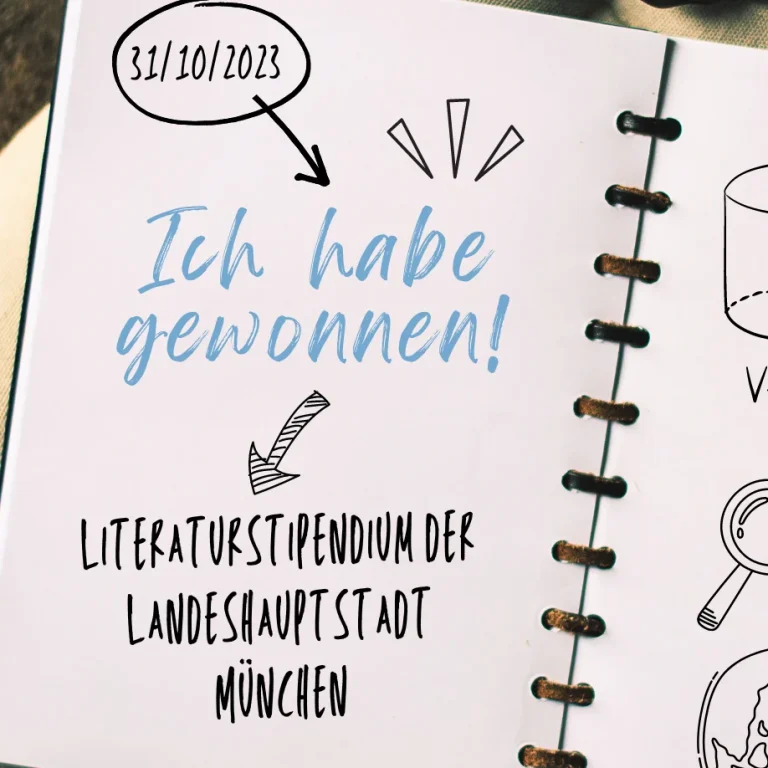 31/10/2023
Ich habe
gewonnen!
LITERATURSTIPENDIUM DER
LANDESHAUPTSTADT
MÜNCHEN